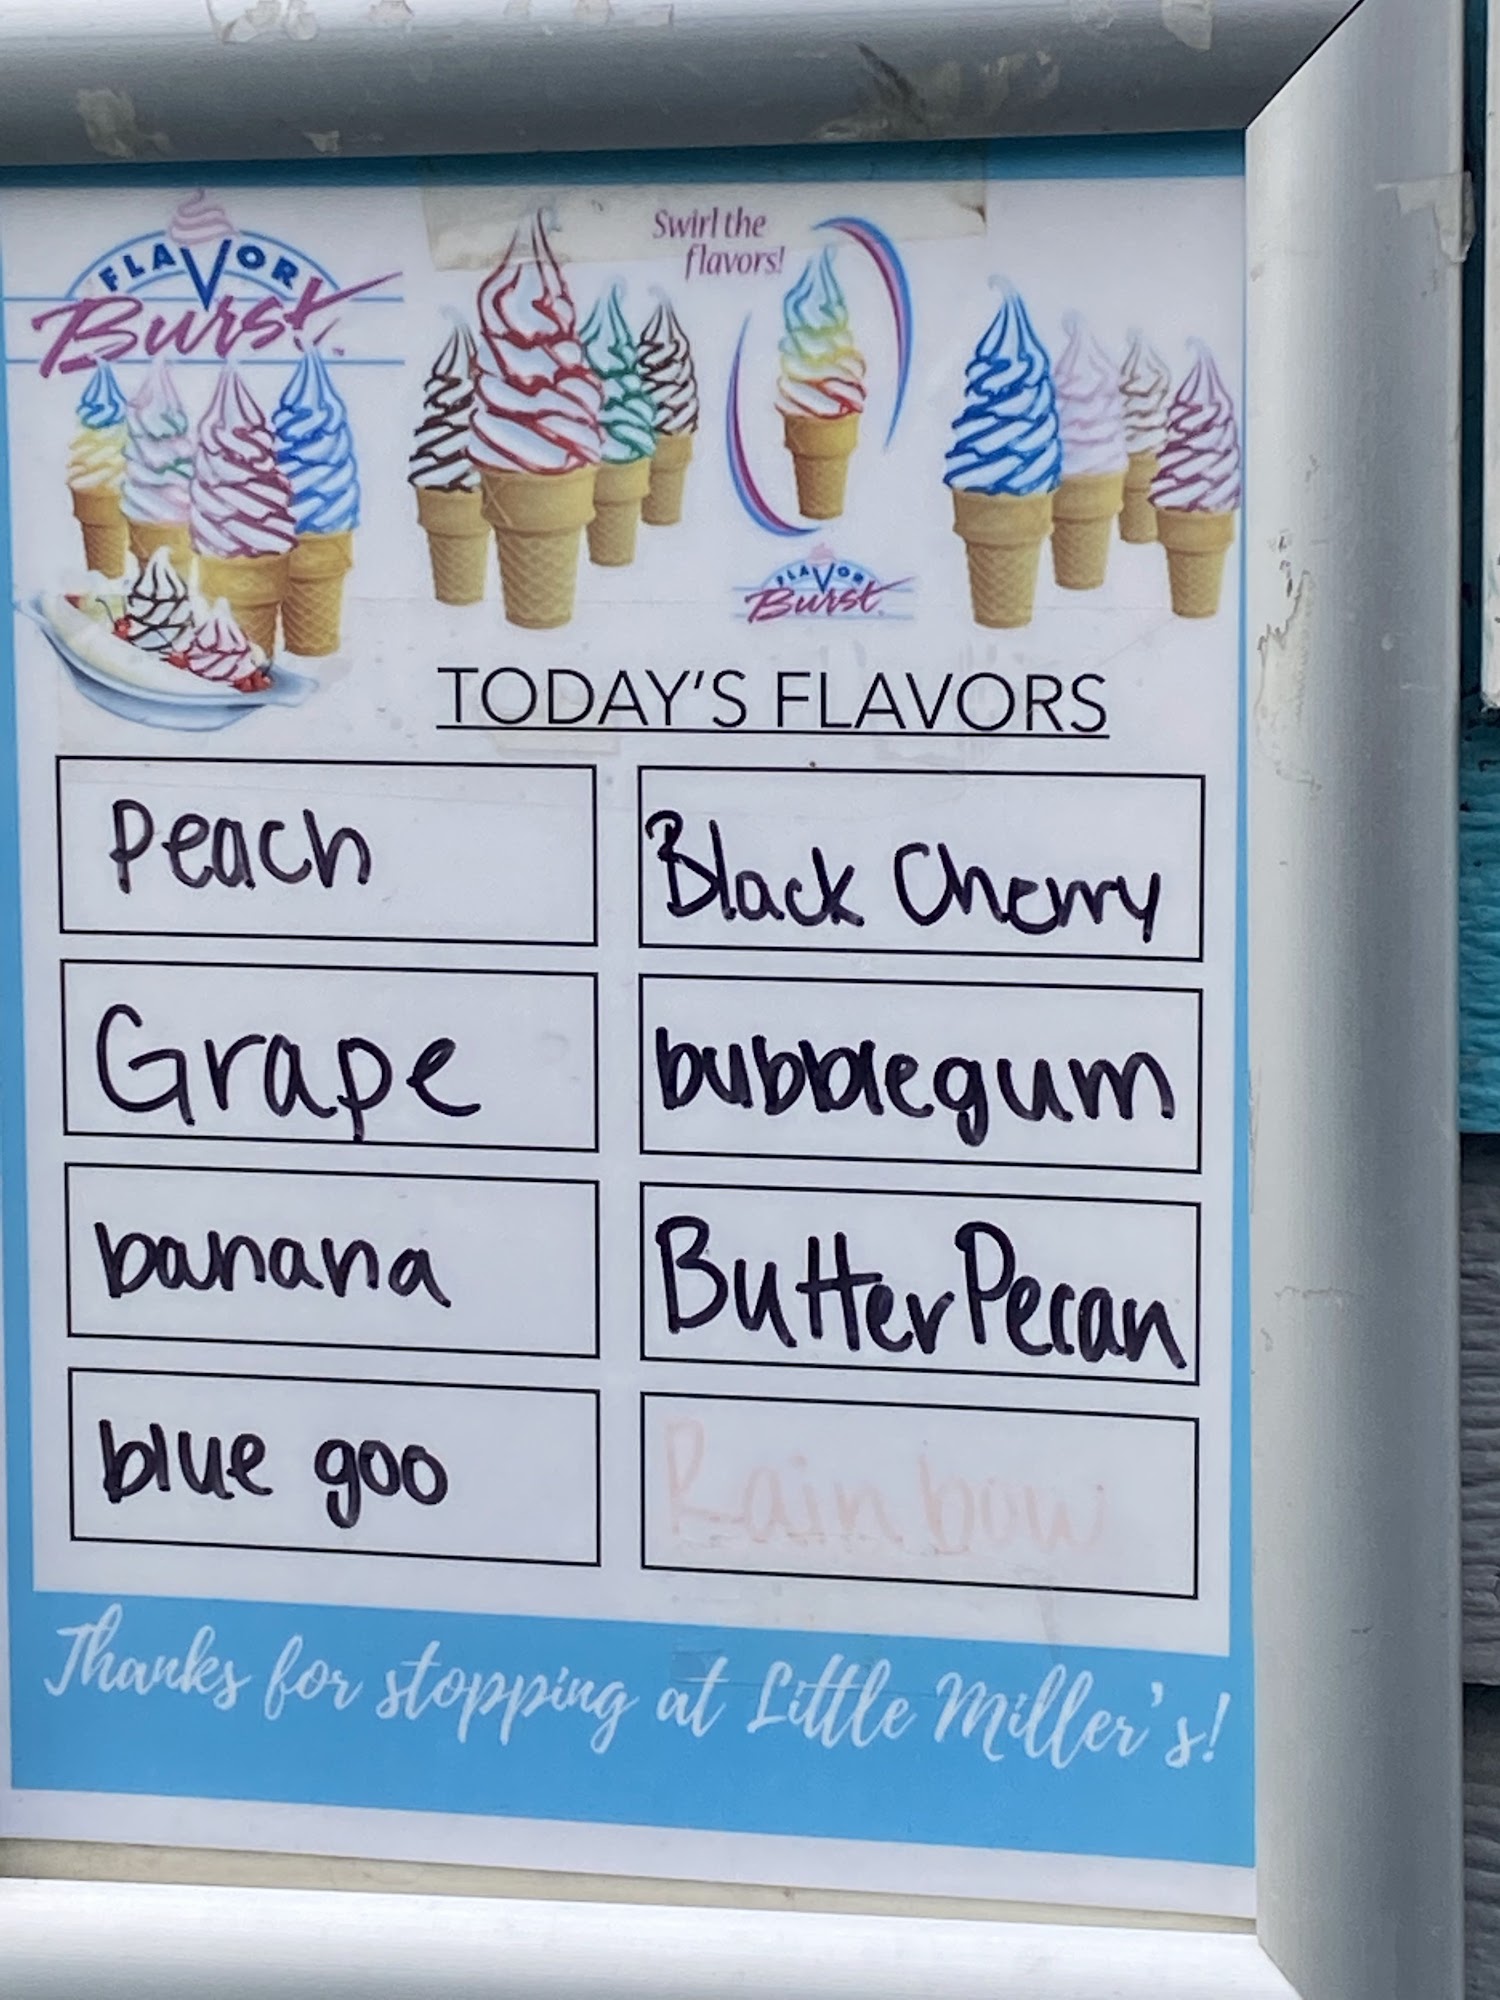 FLAVOR
Burst
Swirl the
flavors!
FLAVOR
Burst
TODAY'S FLAVORS
Peach
Black Cherry
Grape
bubblegum
banana
Butter Pecan
blue goo
Rainbow
Thanks for stopping at Little Miller's!